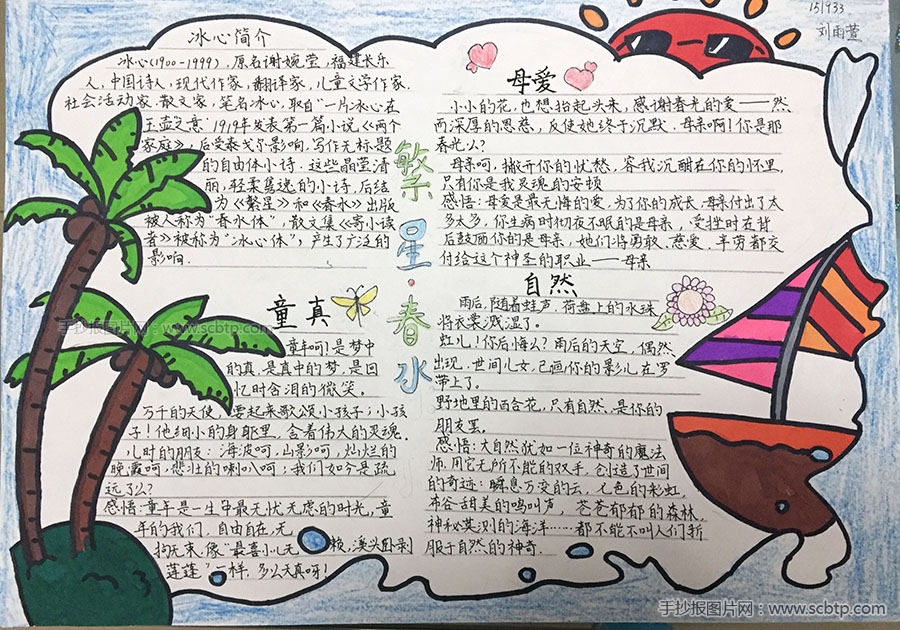 151933
刘雨萱
冰心简介
冰心(1900-1999),原名谢婉莹,福建长乐
人,中国诗人,现代作家,翻译家,儿童文学作家,
社会活动家,散文家,笔名冰心,取自"一片冰心在
玉壶之意"1919年发表第一篇小说《两个
家庭》,后受泰戈尔影响,写作无标题
的自由体小诗.这些晶莹清
丽,轻柔隽逸的小诗,后结
为《繁星》和《春水》出版
被人称为"春水体",散文集《寄小读
者》被称为"冰心体",产生了广泛的
影响.
繁星·春水
童真
童年呵!是梦中
的真,是真中的梦,是回
忆时含泪的微笑.
万千的天使,要起来歌颂小孩子;小孩
子!他细小的身躯里,含着伟大的灵魂.
儿时的朋友:海波呵,山影呵,灿烂的
晚霞呵,悲壮的喇叭呵;我们如今是疏
远了么?
感悟:童年是一生中最无忧无虑的时光,童
年的我们,自由自在,无
拘无束,像"最喜小儿无赖,溪头卧剥
莲蓬"一样,多么天真呀!
母爱
小小的花,也想抬起头来,感谢春光的爱——然
而深厚的恩慈,反使她终于沉默.母亲啊!你是那
春光么?
母亲呵,撇开你的忧愁,容我沉酣在你的怀里,
只有你是我灵魂的安顿
感悟:母爱是最无悔的爱,为了你的成长,母亲付出了太
多太多,你生病时彻夜不眠的是母亲,受挫时在背
后鼓励你的是母亲,她们将勇敢、慈爱、辛劳都交
付给这个神圣的职业——母亲
自然
雨后,随着蛙声,荷盘上的水珠
将衣裳溅湿了。
虹儿!你后悔么?雨后的天空,偶然
出现,世间儿女,已画你的影儿在罗
带上了。
野地里的百合花,只有自然,是你的
朋友罢。
感悟:大自然犹如一位神奇的魔法
师,用它无所不能的双手,创造了世间
的奇迹:瞬息万变的云,七色的彩虹,
布谷甜美的鸣叫声,苍苍郁郁的森林,
神秘莫测的海洋……都不能不叫人们折
服于自然的神奇.
手抄报图片网:www.scbtp.com
手抄报图片网:www.scbtp.com